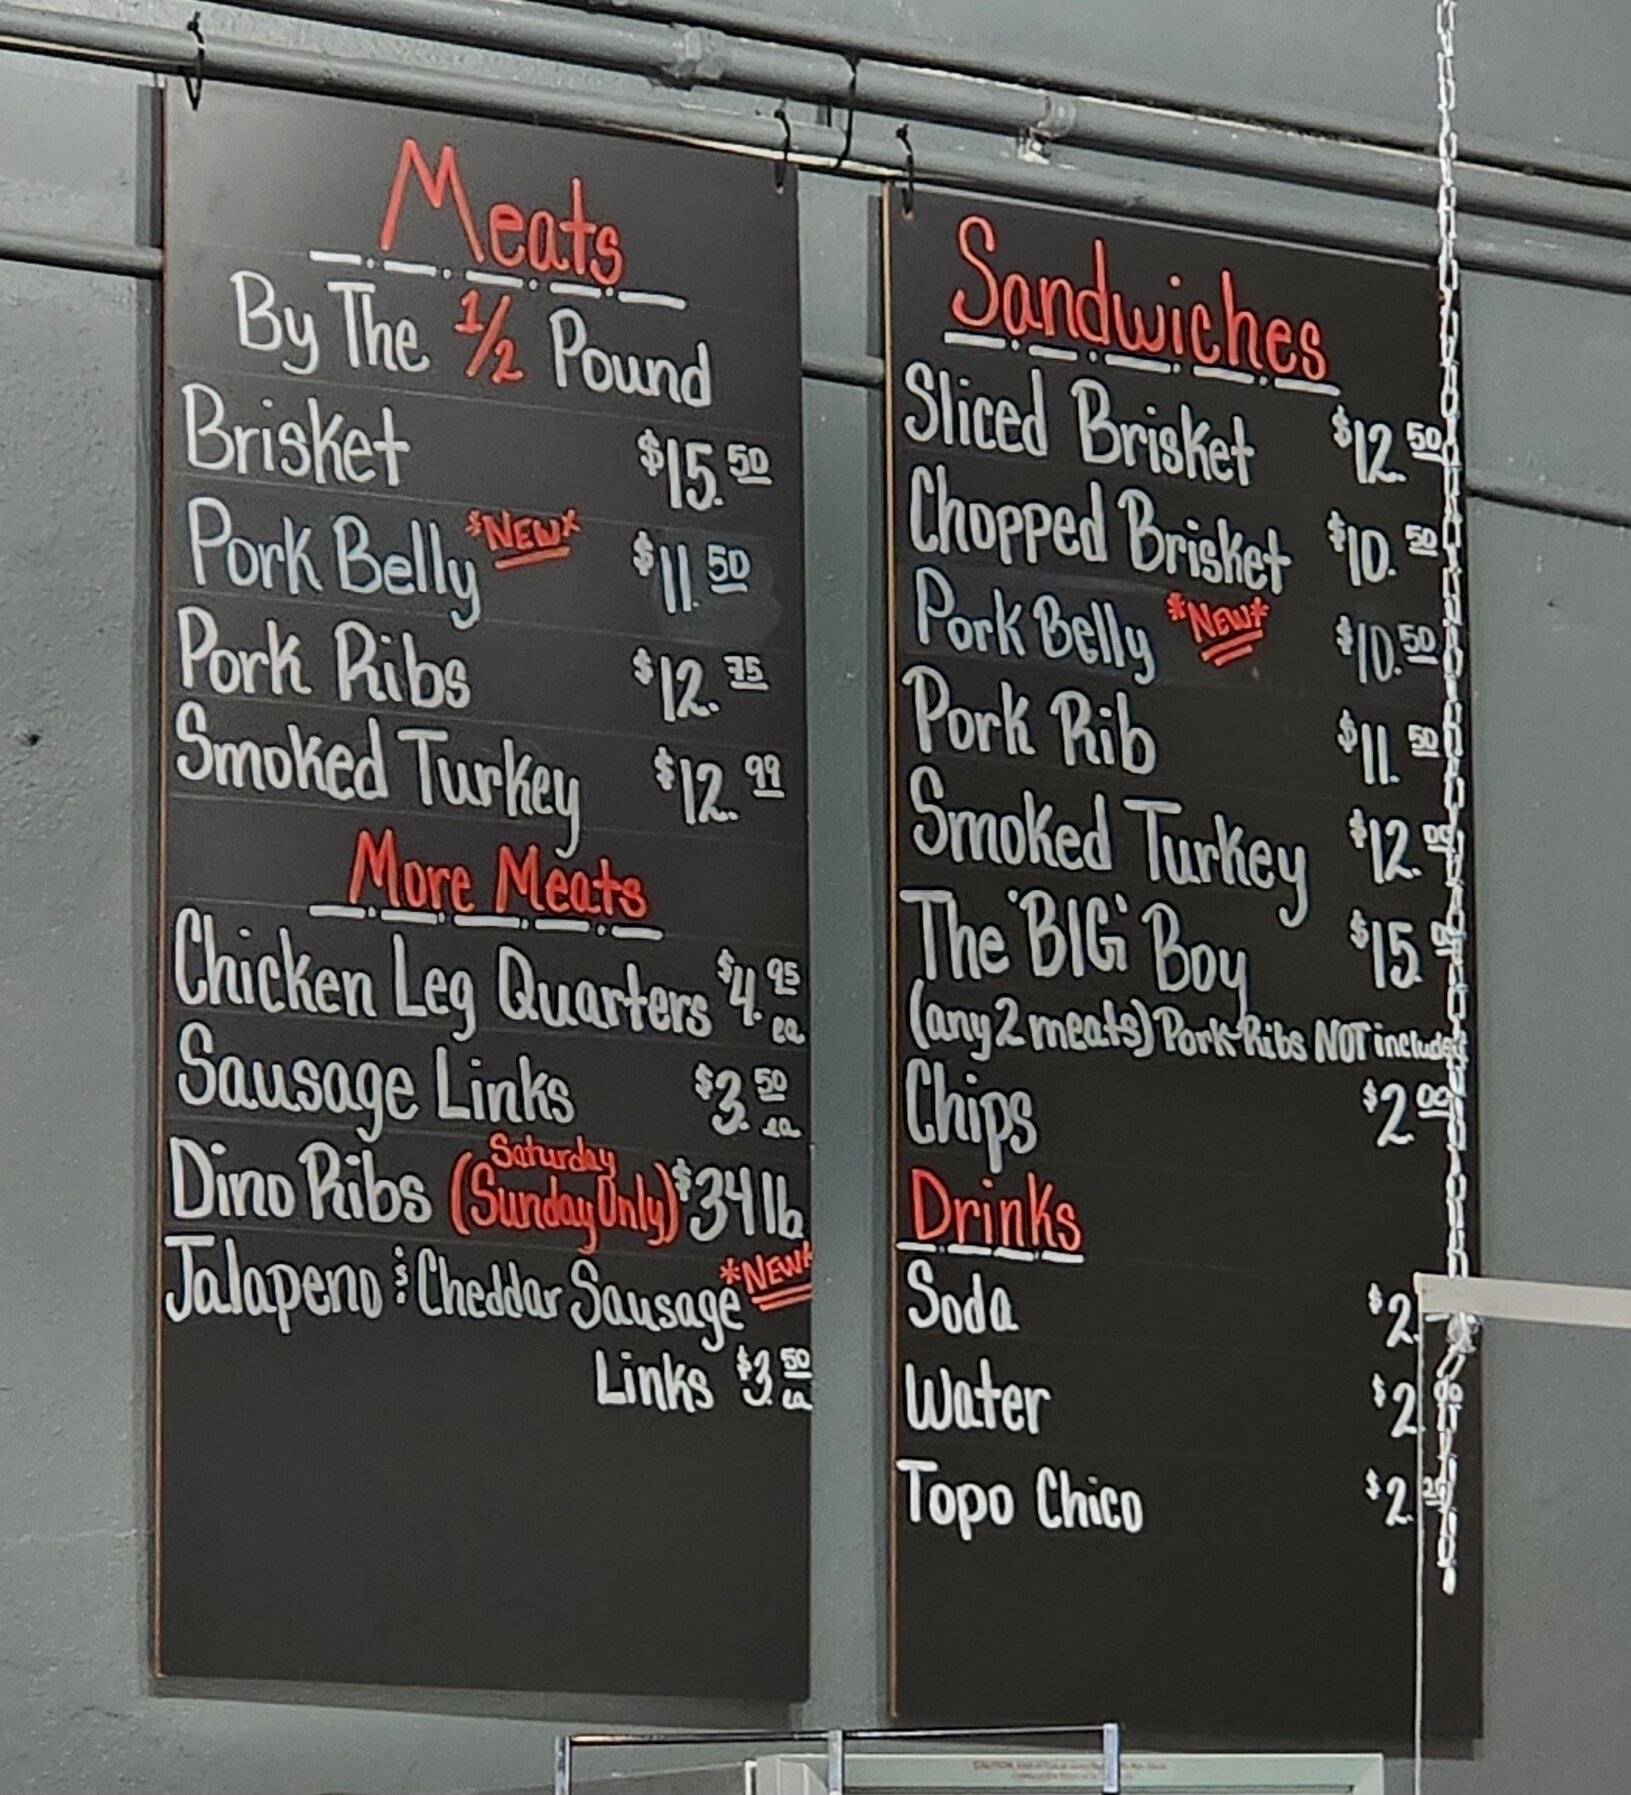 Meats
By The 1/2 Pound
Brisket $15.50
Pork Belly *NEW* $11.50
Pork Ribs $12.75
Smoked Turkey $12.99
More Meats
Chicken Leg Quarters $4.95 ea
Sausage Links $3.50 ea
Dino Ribs (Saturday Sunday Only) $34 lb
Jalapeno & Cheddar Sausage *NEW*
Links $3.50 ea
Sandwiches
Sliced Brisket $12.50
Chopped Brisket $10.50
Pork Belly *NEW* $10.50
Pork Rib $11.50
Smoked Turkey $12.00
The "BIG" Boy $15.00
(any 2 meats) Pork Ribs NOT included
Chips $2.00
Drinks
Soda $2.
Water $2.00
Topo Chico $2.